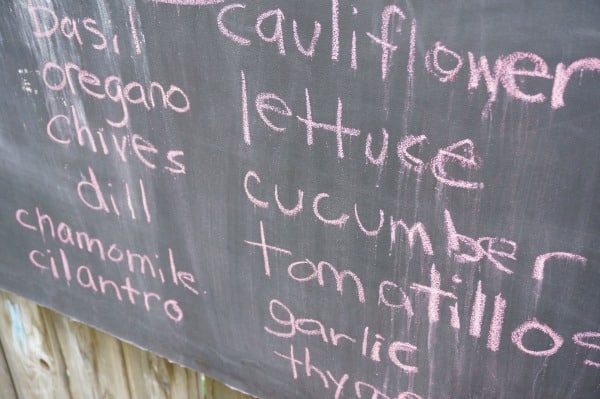 basil
oregano
chives
dill
chamomile
cilantro
cauliflower
lettuce
cucumber
tomatillos
garlic
thyme